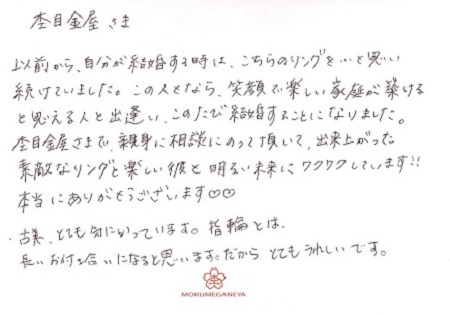 杢目金屋 さま
以前から、自分が結婚する時は、こちらのリングを…と思い
続けていました。この人となら、笑顔で楽しい家庭が築ける
と思える人と出逢い、このたび結婚することになりました。
杢目金屋さまで、親身に相談にのって頂いて、出来上がった
素敵なリングと楽しい彼と明るい未来にワクワクしています!!
本当にありがとうございます♡♡
とても気に入っています。指輪とは、
長いお付き合いになると思います。だからとてもうれしいです。
MOKUMEGANEYA